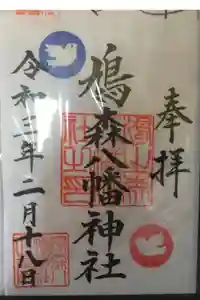 奉拝
鳩森八幡神社
令和三年二月十八日